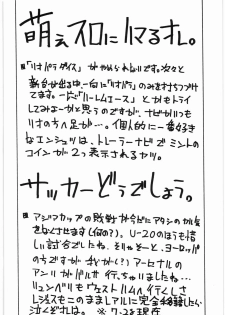 萌えスロにハマるオレ。
■「リオパラダイス」がやめられないです。次々と
新台が出る中、一向に「リオパラ」のみを打ちつづけ
てます。一応「ハーレムエース」とかもトライ
してみよーかと思うのですが、ナゼかいつも
リオのちへ足が…。個人的に一番好き
なエンジェツは、トレーラーナビで ミントの
コインが2つ表示されるヤツ。
サッカーどうでしょう。
■ アジアカップの敗戦が今だにアタシの
をなえさせます(何の?)。U-20のほうも惜し
い試合でしたね。そいやそーと、ヨーロッパ
のちですが 我が(?) アーセナルの
アンリがバルサ 行っちゃいましたね…
リュンベリもウエストハム へ行くしさ
レジェスもこのままレアルに完全移籍したら
泣くぞオレは。 ※ 7.23 現在